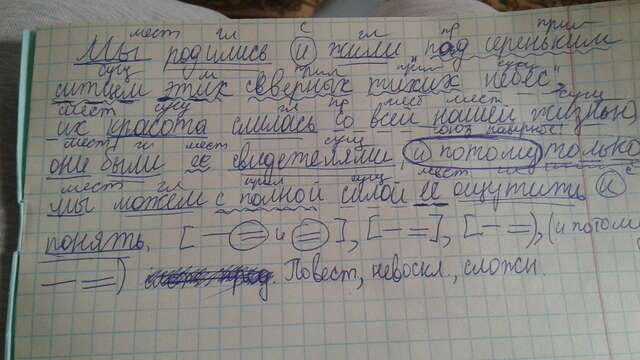 мест гл с гл пр прил
Мы родились и жили "под сереньким
сущ м прил прил сущ
ситцем этих северных тихих небес",
мест сущ гл пр мест мест сущ
их красота слилась со всей нашей жизнью,
мест гл мест сущ союз наверное
они были ее свидетелями, и потому только
мест гл прил сущ мест гл с
мы можем с полной силой ее ощутить и
понять. [— = и =], [— =], [— =), (и потому
— =) . Повест., невоскл., сложн.